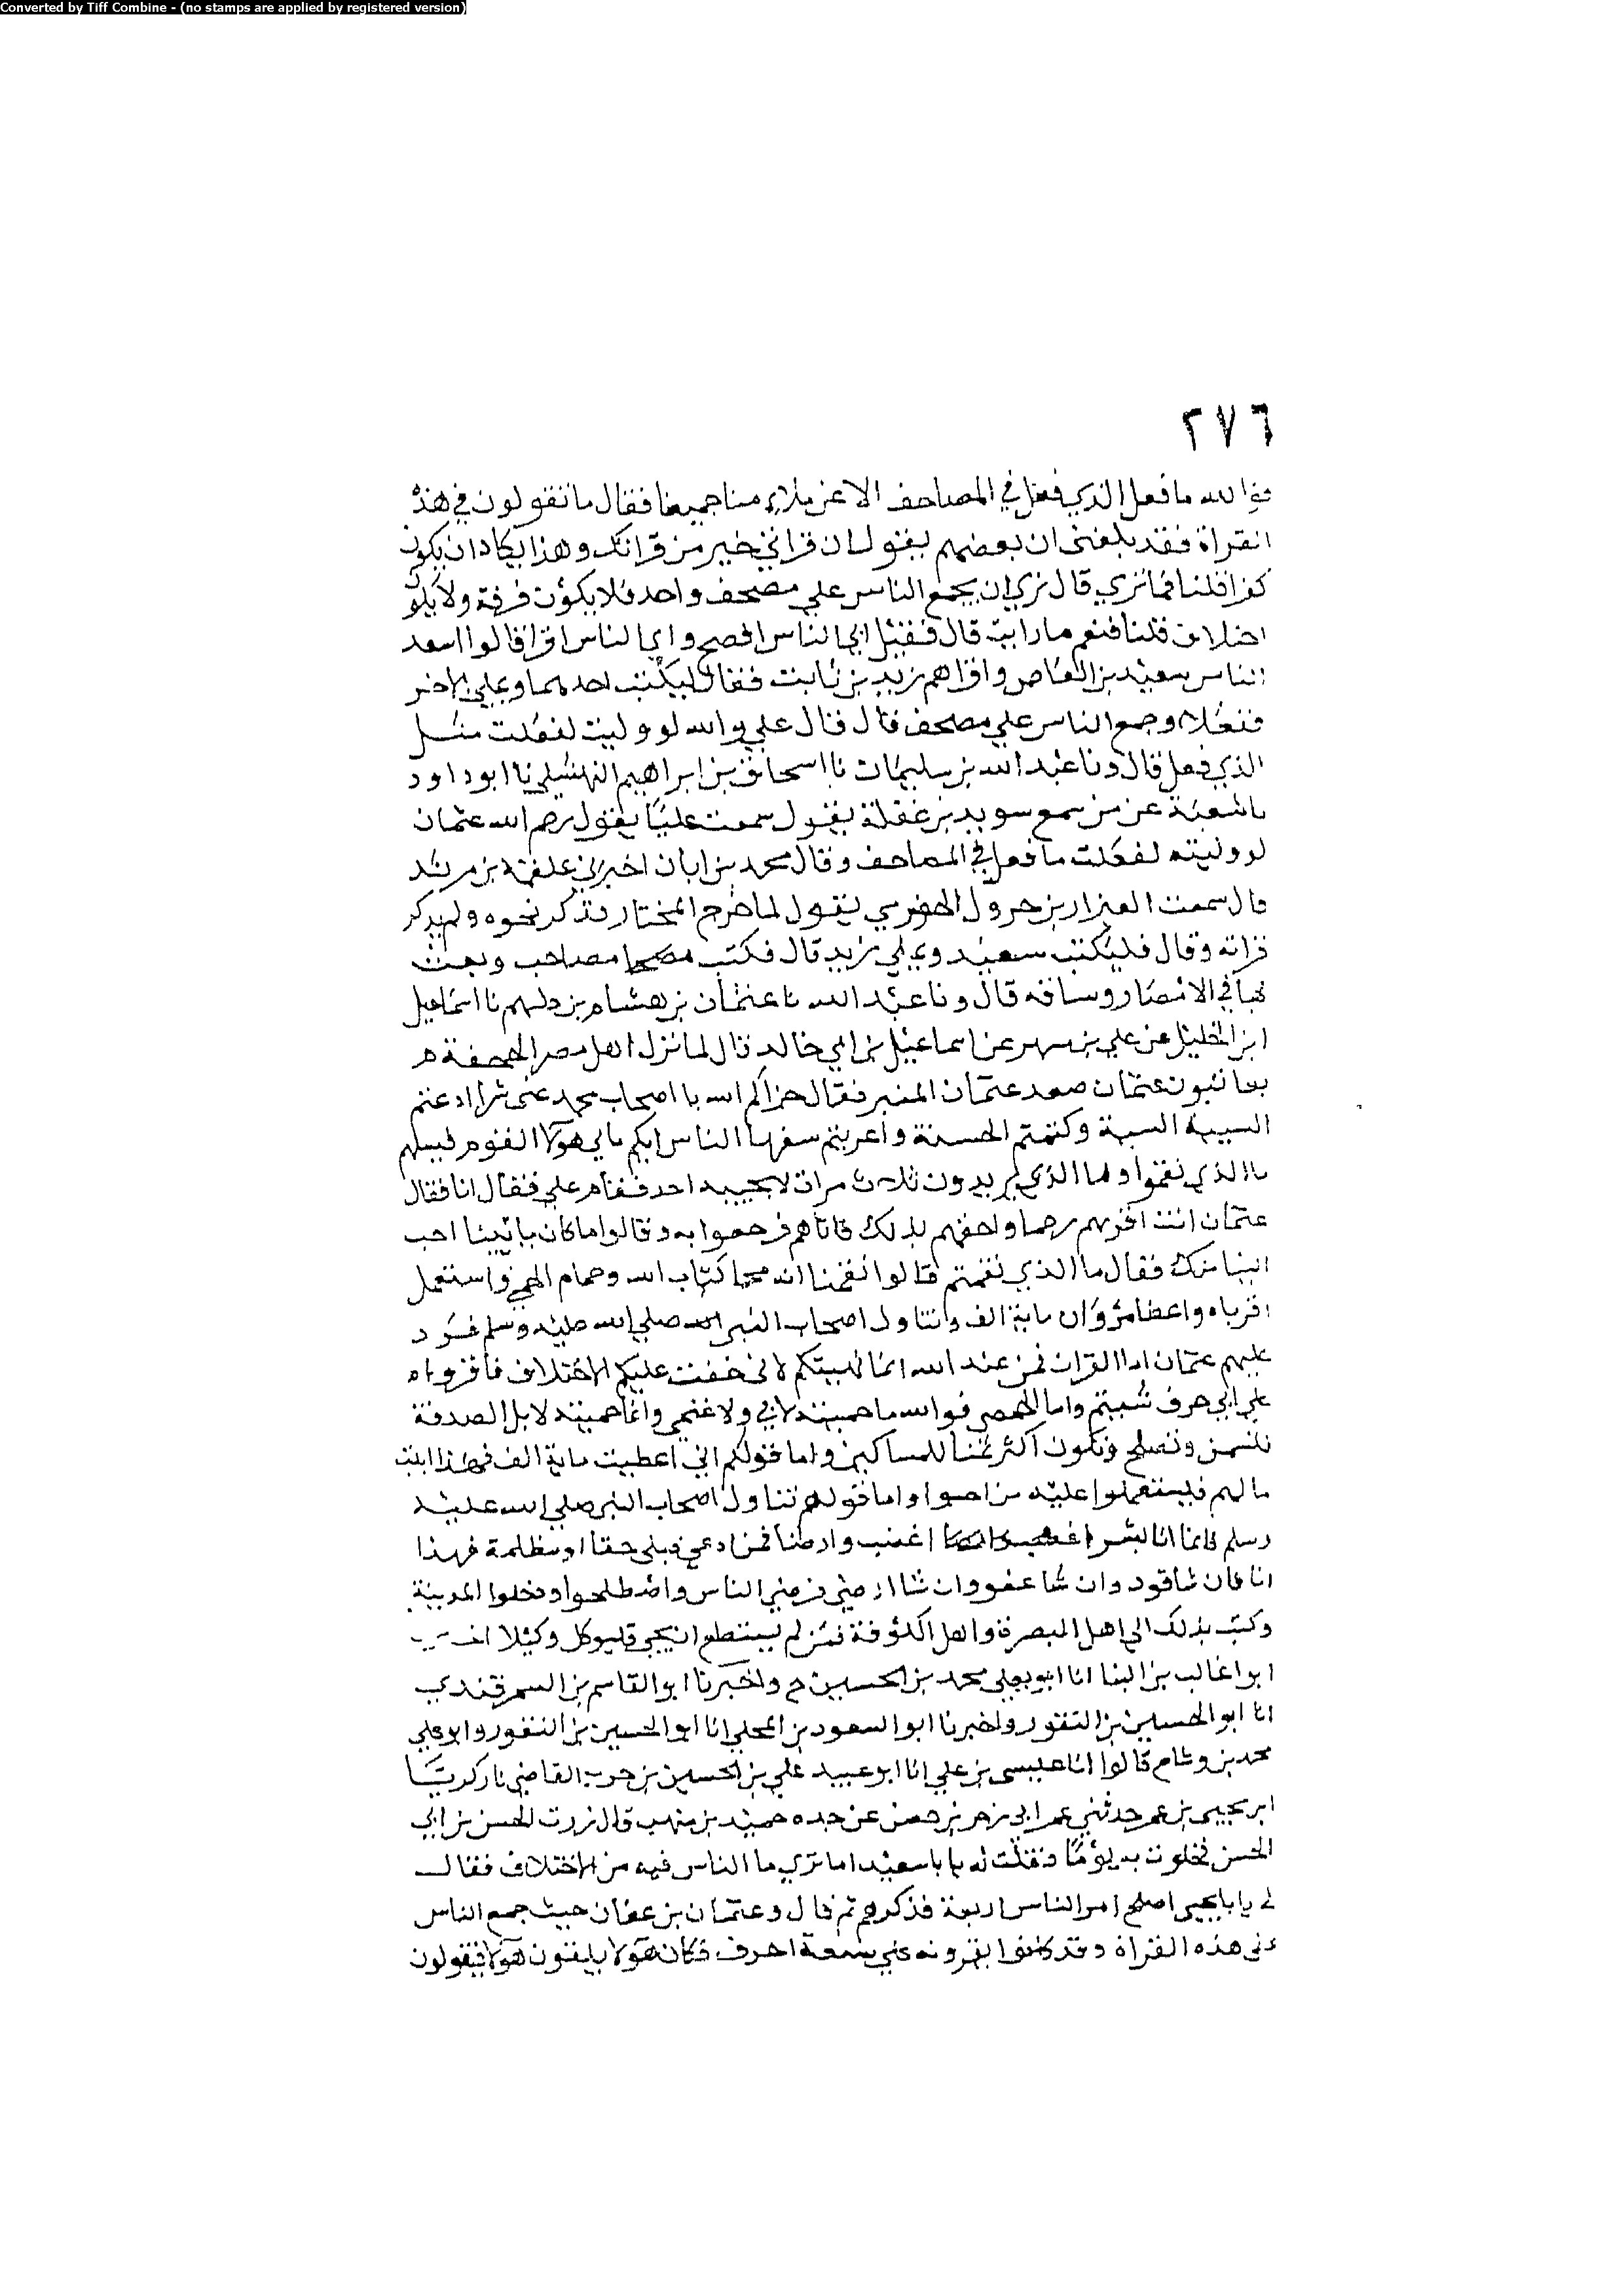 Converted by Tiff Combine - (no stamps are applied by registered version)
٢٧٦
فوالله ما فعل الذي فعل في المصاحف الا عن ملاء منا جميعا فقال ما تقولون في هذه
القراة فقد بلغني ان بعضهم يقول ان قراني خير من قرانك وهذا يكاد ان يكون
كفرا قلنا فما تري قال نري ان يجمع الناس علي مصحف واحد فلا يكون فرقة ولا يكون
اختلاف قلنا فنعم ما رايت قال فقيل اي الناس افصح واي الناس اقرا قالوا افصح
الناس سعيد بن العاص واقراهم زيد بن ثابت فقال ليكتب احدهما ويملي الاخر
ففعلا وجمع الناس علي مصحف قال قال علي والله لو وليت لفعلت مثل
الذي فعل قال ونا عبد الله بن سليمان نا اسحاق بن ابراهيم النهشلي نا ابو داود
نا شعبة عن من سمع سويد بن غفلة يقول سمعت عليا يقول رحم الله عثمان
لو وليته لفعلت ما فعل في المصاحف وقال محمد بن ابان اخبرني علقمة بن مرثد
قال سمعت العيزار بن جرول الحضرمي يقول لما خرج المختار فذكر نحوه ولم يذكر
قراته وقال فليكتب سعيد ويملي زيد قال فكتب مصاحف وبعث
بها في الامصار وساقه قال ونا عبد الله نا عثمان بن هشام بن دلهم نا اسماعيل
ابن الخليل عن علي بن مسهر عن اسماعيل بن ابي خالد قال لما نزل اهل مصر الجحفة
يعاتبون عثمان صعد عثمان المنبر فقال جزاكم الله يا اصحاب محمد عني شرا اذعتم
السيئة وكتمتم الحسنة واغريتم سفها الناس ايكم ياتي هولا القوم فيسلهم
ما الذي نقموا وما الذي يريدون ثلاث مرات لا يجيبه احد فقام علي فقال انا فقال
عثمان انت اقربهم رحما واحقهم بذلك فاتاهم فرحبوا به وقالوا ما كان ياتينا احب
الينا منك فقال ما الذي نقمتم قالوا نقمنا انه محا كتاب الله وحمي الحمي واستعمل
اقرباه واعطا مروان ماية الف وتناول اصحاب النبي صلي الله عليه وسلم فرد
عليهم عثمان اما القران فمن عند الله انما نهيتكم لاني خفت عليكم الاختلاف فاقروه
علي اي حرف شيتم واما الحمي فوالله ما حميته لابلي ولا غنمي وانما حميته لابل الصدقة
لتسمن وتصلح وتكون اكثر ثمنا للمساكين واما قولكم اني اعطيت ماية الف فهذا بيت
مالهم فليستعملوا عليه من احبوا واما قولهم تناول اصحاب النبي صلي الله عليه
وسلم فانما انا بشر اغضب وارضا فمن ادعي قبلي حقا او مظلمة فهذا
انا فان شا قود وان شا عفو وان شا ارضي فرضي الناس واصطلحوا ودخلوا المدينة
وكتب بذلك الي اهل البصرة واهل الكوفة فمن لم يستطع ان يجي فليوكل وكيلا
ابوا غالب بن البنا انا ابو يعلي محمد بن الحسين ح واخبرنا ابو القاسم بن السمرقندي
انا ابو الحسين بن النقور واخبرنا ابوا السعود بن المجلي انا ابو الحسين بن النقور وابو علي
محمد بن وشاح قالوا انا عيسى بن علي انا ابو عبيد علي بن الحسين بن حرب القاضي نا زكريا
ابن يحيى بن عمر حدثني عم ابي زحر بن حصن عن جده حميد بن منهب قال زرت الحسن بن ابي
الحسن فخلوت به يوما فقلت له يا با سعيد اما تري ما الناس فيه من الاختلاف فقال
لي يا با يحيى اصلح امر الناس اربعة فذكرهم ثم قال وعثمان بن عفان حيث جمع الناس
على هذه القراة وقد كانوا يقرونه علي سبعة احرف فكان هولا يلقون هولا فيقولون